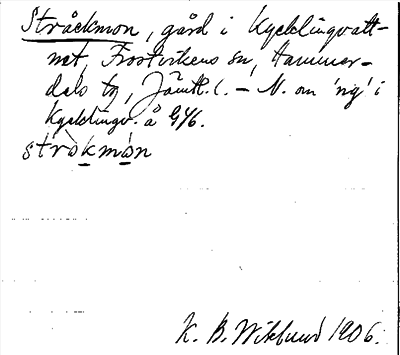 Stråckmon, gård i Kycklingvatt-
net, Frostvikens sn, Hammer-
dals tg, Jämtl. l. – N. om 'ng' i
Kycklingv. å G46.
stròkmòn
K. B. Wiklund 1906.